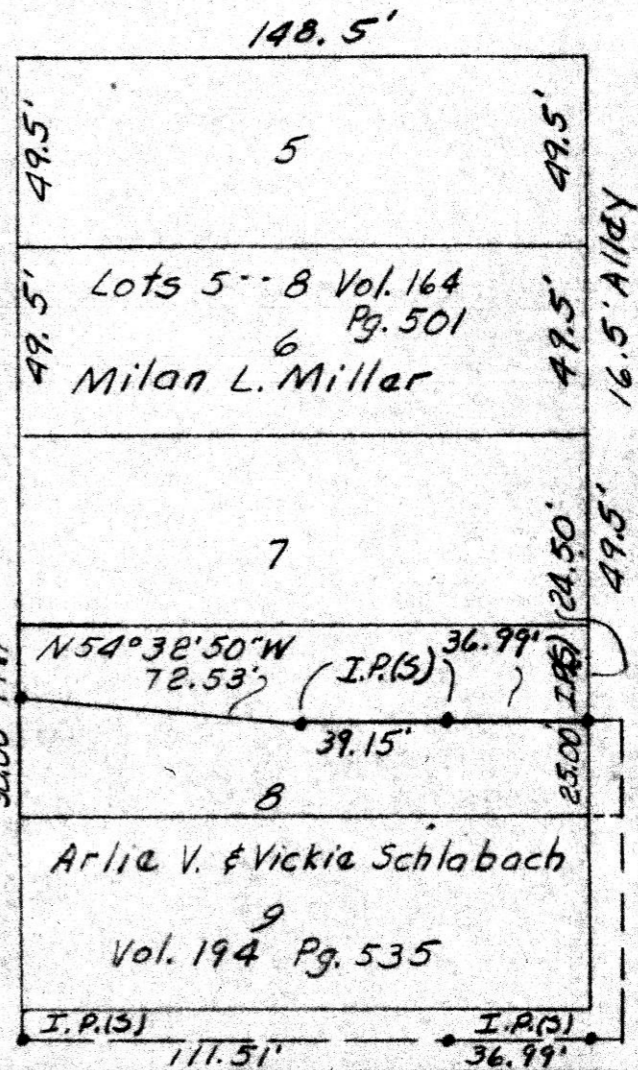 148.5'
49.5'
5
49.5'
16.5' Alley
Lots 5--8 Vol. 164
Pg. 501
49.5'
6
49.5'
Milan L. Miller
7
(24.50'
49.5'
N54°38'50"W
72.53'
I.P.(S)
36.99'
I.P.(S)
39.15'
25.00'
8
Arlie V. & Vickie Schlabach
9
Vol. 194 Pg. 535
I.P.(S)
I.P.(S)
111.51'
36.99'